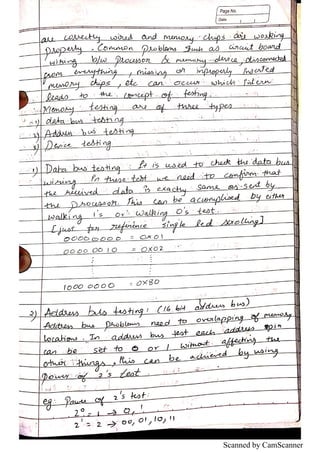 Page No.
Date
are correctly wired and memory chips are working
properly. Common problems such as circuit board
wiring b/w processor & memory device, disconnected
from everything, missing or improperly inserted
memory chips, etc can occur which intern
leads to the concept of testing.
Memory testing are of three types
1) data bus testing
2) Address bus testing
3) Device testing
1) Data bus testing : It is used to check the data bus
wiring. In these test we need to confirm that
the received data is exactly same as sent by
the processor. This can be accomplished by either
walking 1's or walking 0's test.
[just for reference single led scrolling]
0000 0000 = 0x01
0000 0010 = 0x02
1000 0000 = 0x80
2) Address bus testing : (16 bit address bus)
Address bus problems need to overlapping of memory
location. In address bus test each address pin
can be set to 0 or 1 without affecting the
other things, this can be achieved by using
power of 2's test
eg: Power of 2's test.
2⁰ = 1 → 0, 1
2¹ = 2 → 00, 01, 10, 11
Scanned by CamScanner